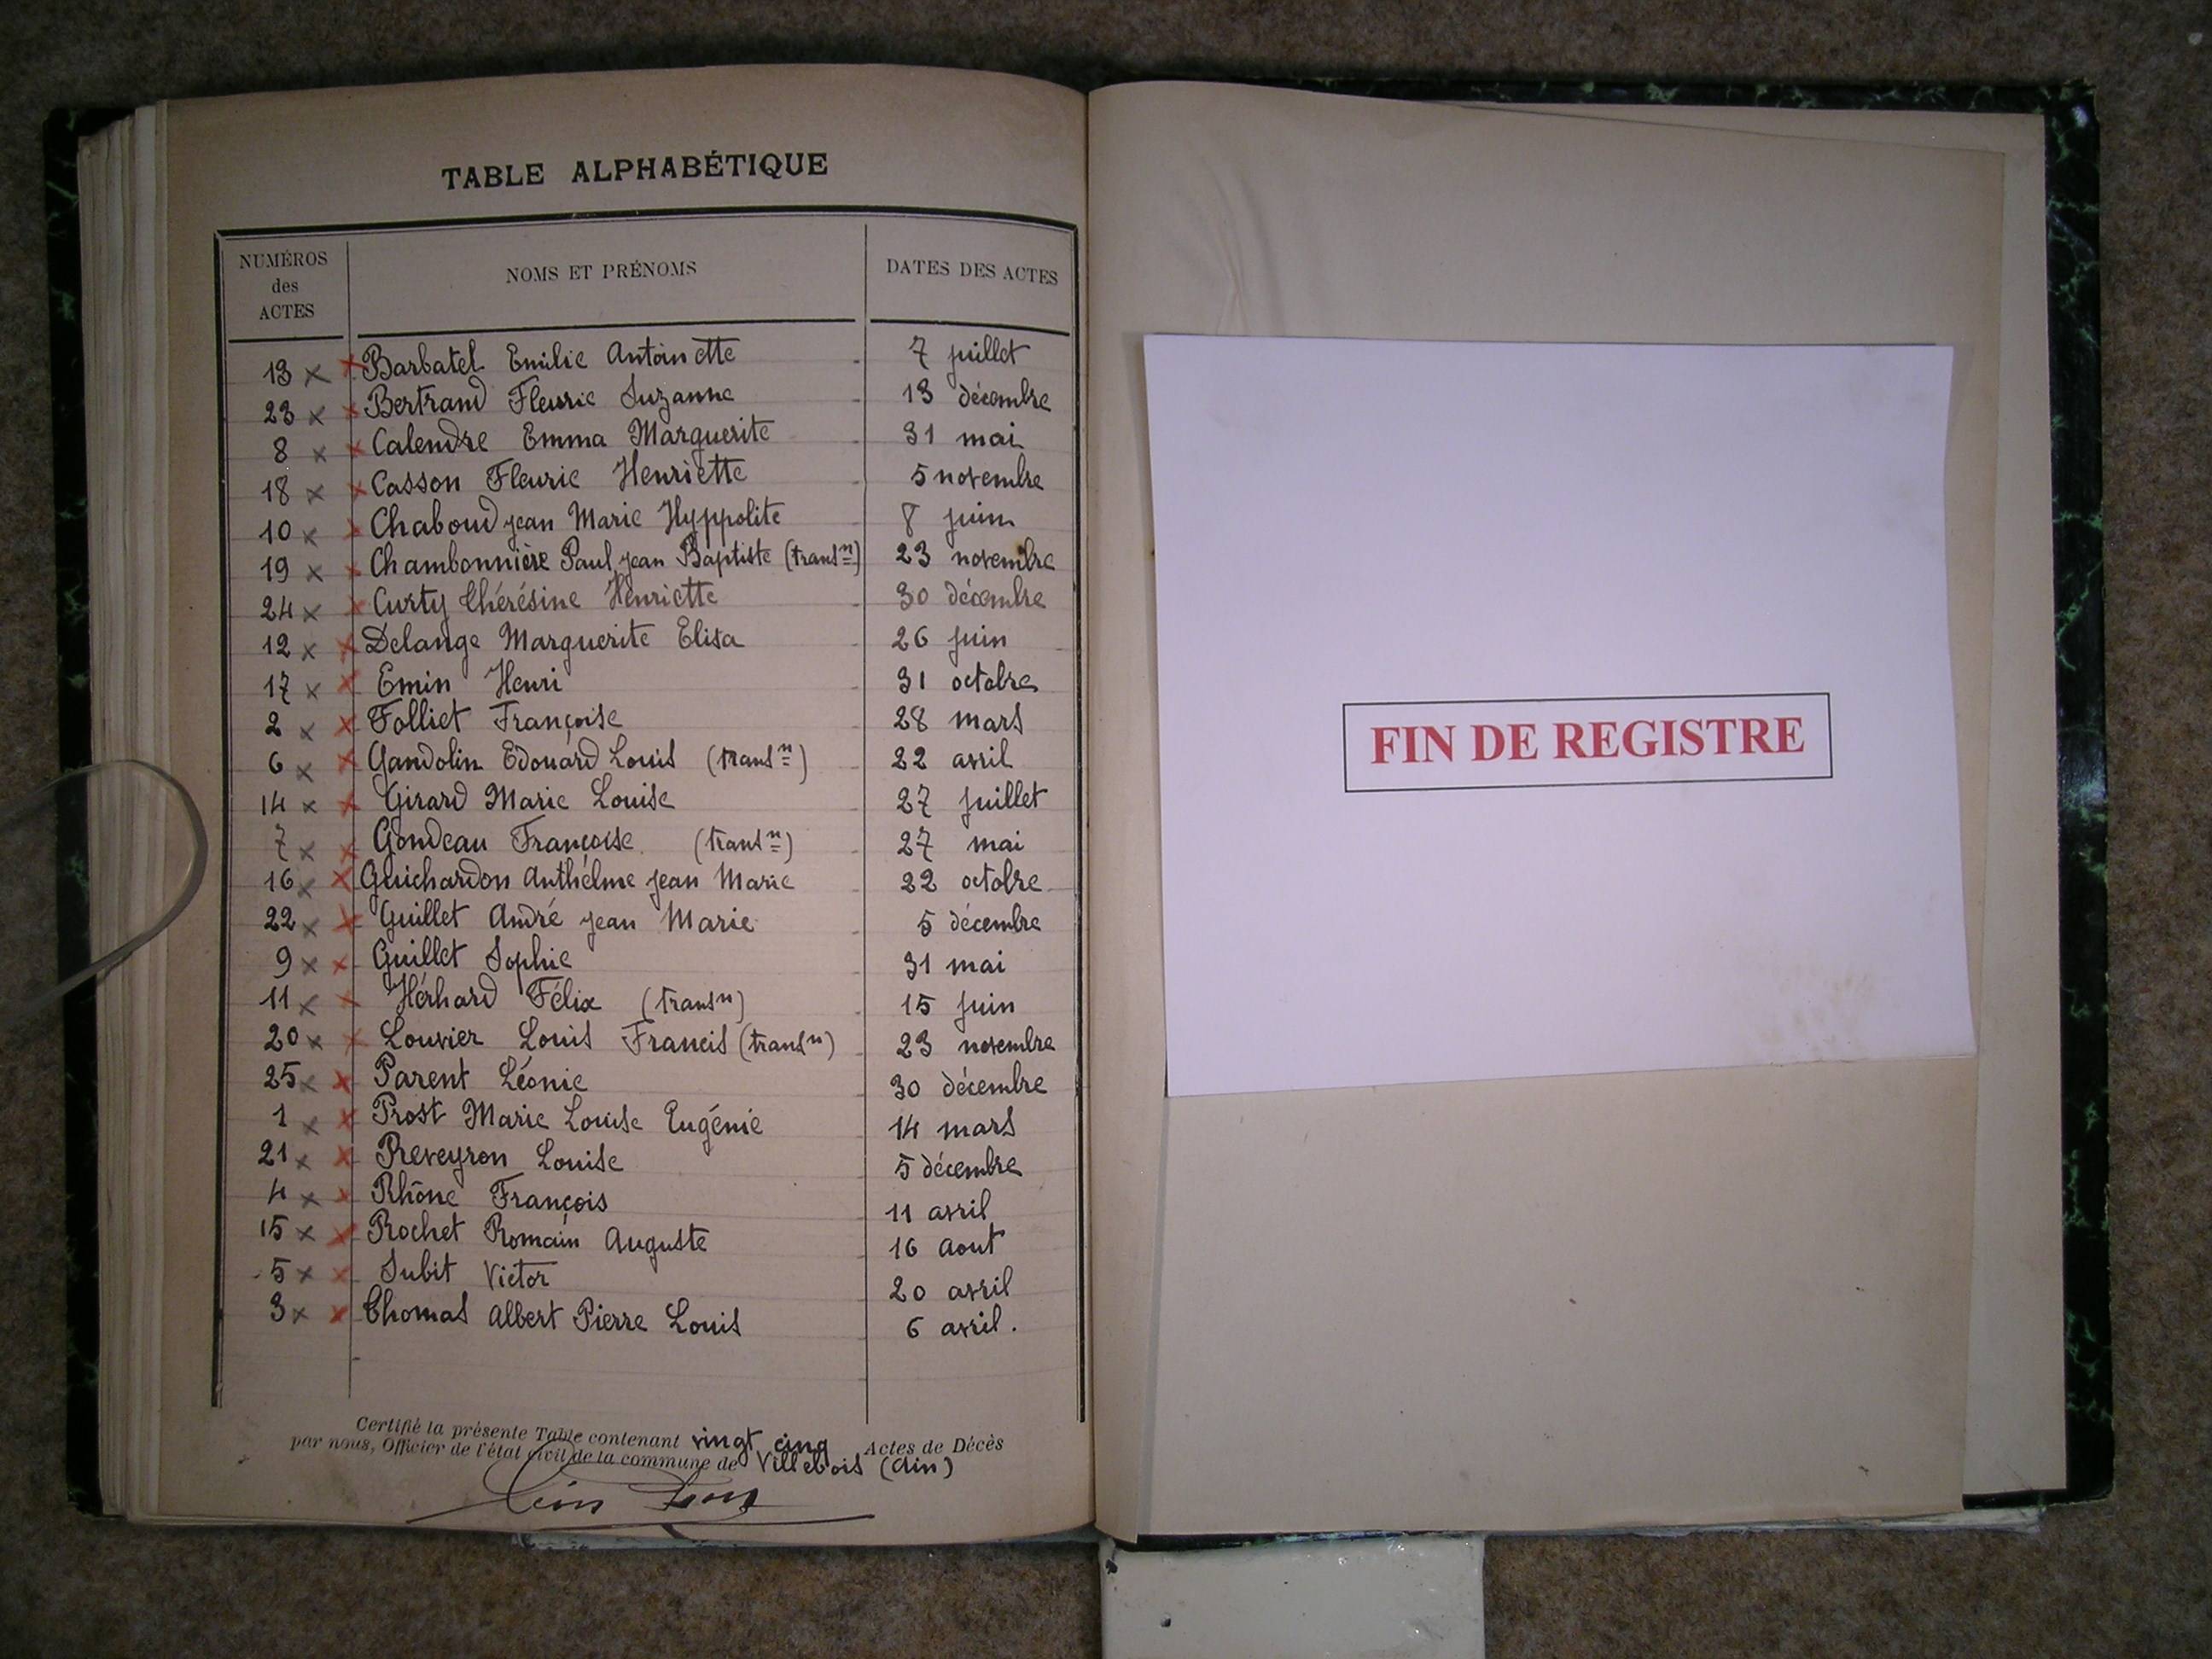 TABLE ALPHABÉTIQUE
NUMÉROS des ACTES NOMS ET PRÉNOMS DATES DES ACTES
13 Barbatel Emilie Antoinette 7 juillet
23 Bertrand Fleurie Suzanne 13 décembre
8 Calendre Emma Marguerite 31 mai
18 Casson Fleurie Henriette 5 novembre
10 Chaboud jean Marie Hyppolite 8 juin
19 Chambonnière Paul jean Baptiste (transn) 23 novembre
24 Curty Thérésine Henriette 30 décembre
12 Delange Marguerite Elisa 26 juin
17 Emin Henri 31 octobre
2 Folliet Françoise 28 mars
6 Gandolin Edouard Louis (transn) 22 avril
14 Girard Marie Louise 27 juillet
7 Gondeau Françoise (transn) 27 mai
16 Guichardon Anthelme jean Marie 22 octobre
22 Guillet André jean Marie 5 décembre
9 Guillet Sophie 31 mai
11 Hérhard Félix (transn) 15 juin
20 Louvier Louis Francis (transn) 23 novembre
25 Parent Léonie 30 décembre
1 Prost Marie Louise Eugénie 14 mars
21 Reveyron Louise 5 décembre
4 Rhône François 11 avril
15 Rochet Romain Auguste 16 aout
5 Subit Victor 20 avril
3 Thomas Albert Pierre Louis 6 avril.
Certifié la présente Table contenant vingt cinq Actes de Décès
par nous, Officier de l'état civil de la commune de Villebois (Ain)
FIN DE REGISTRE